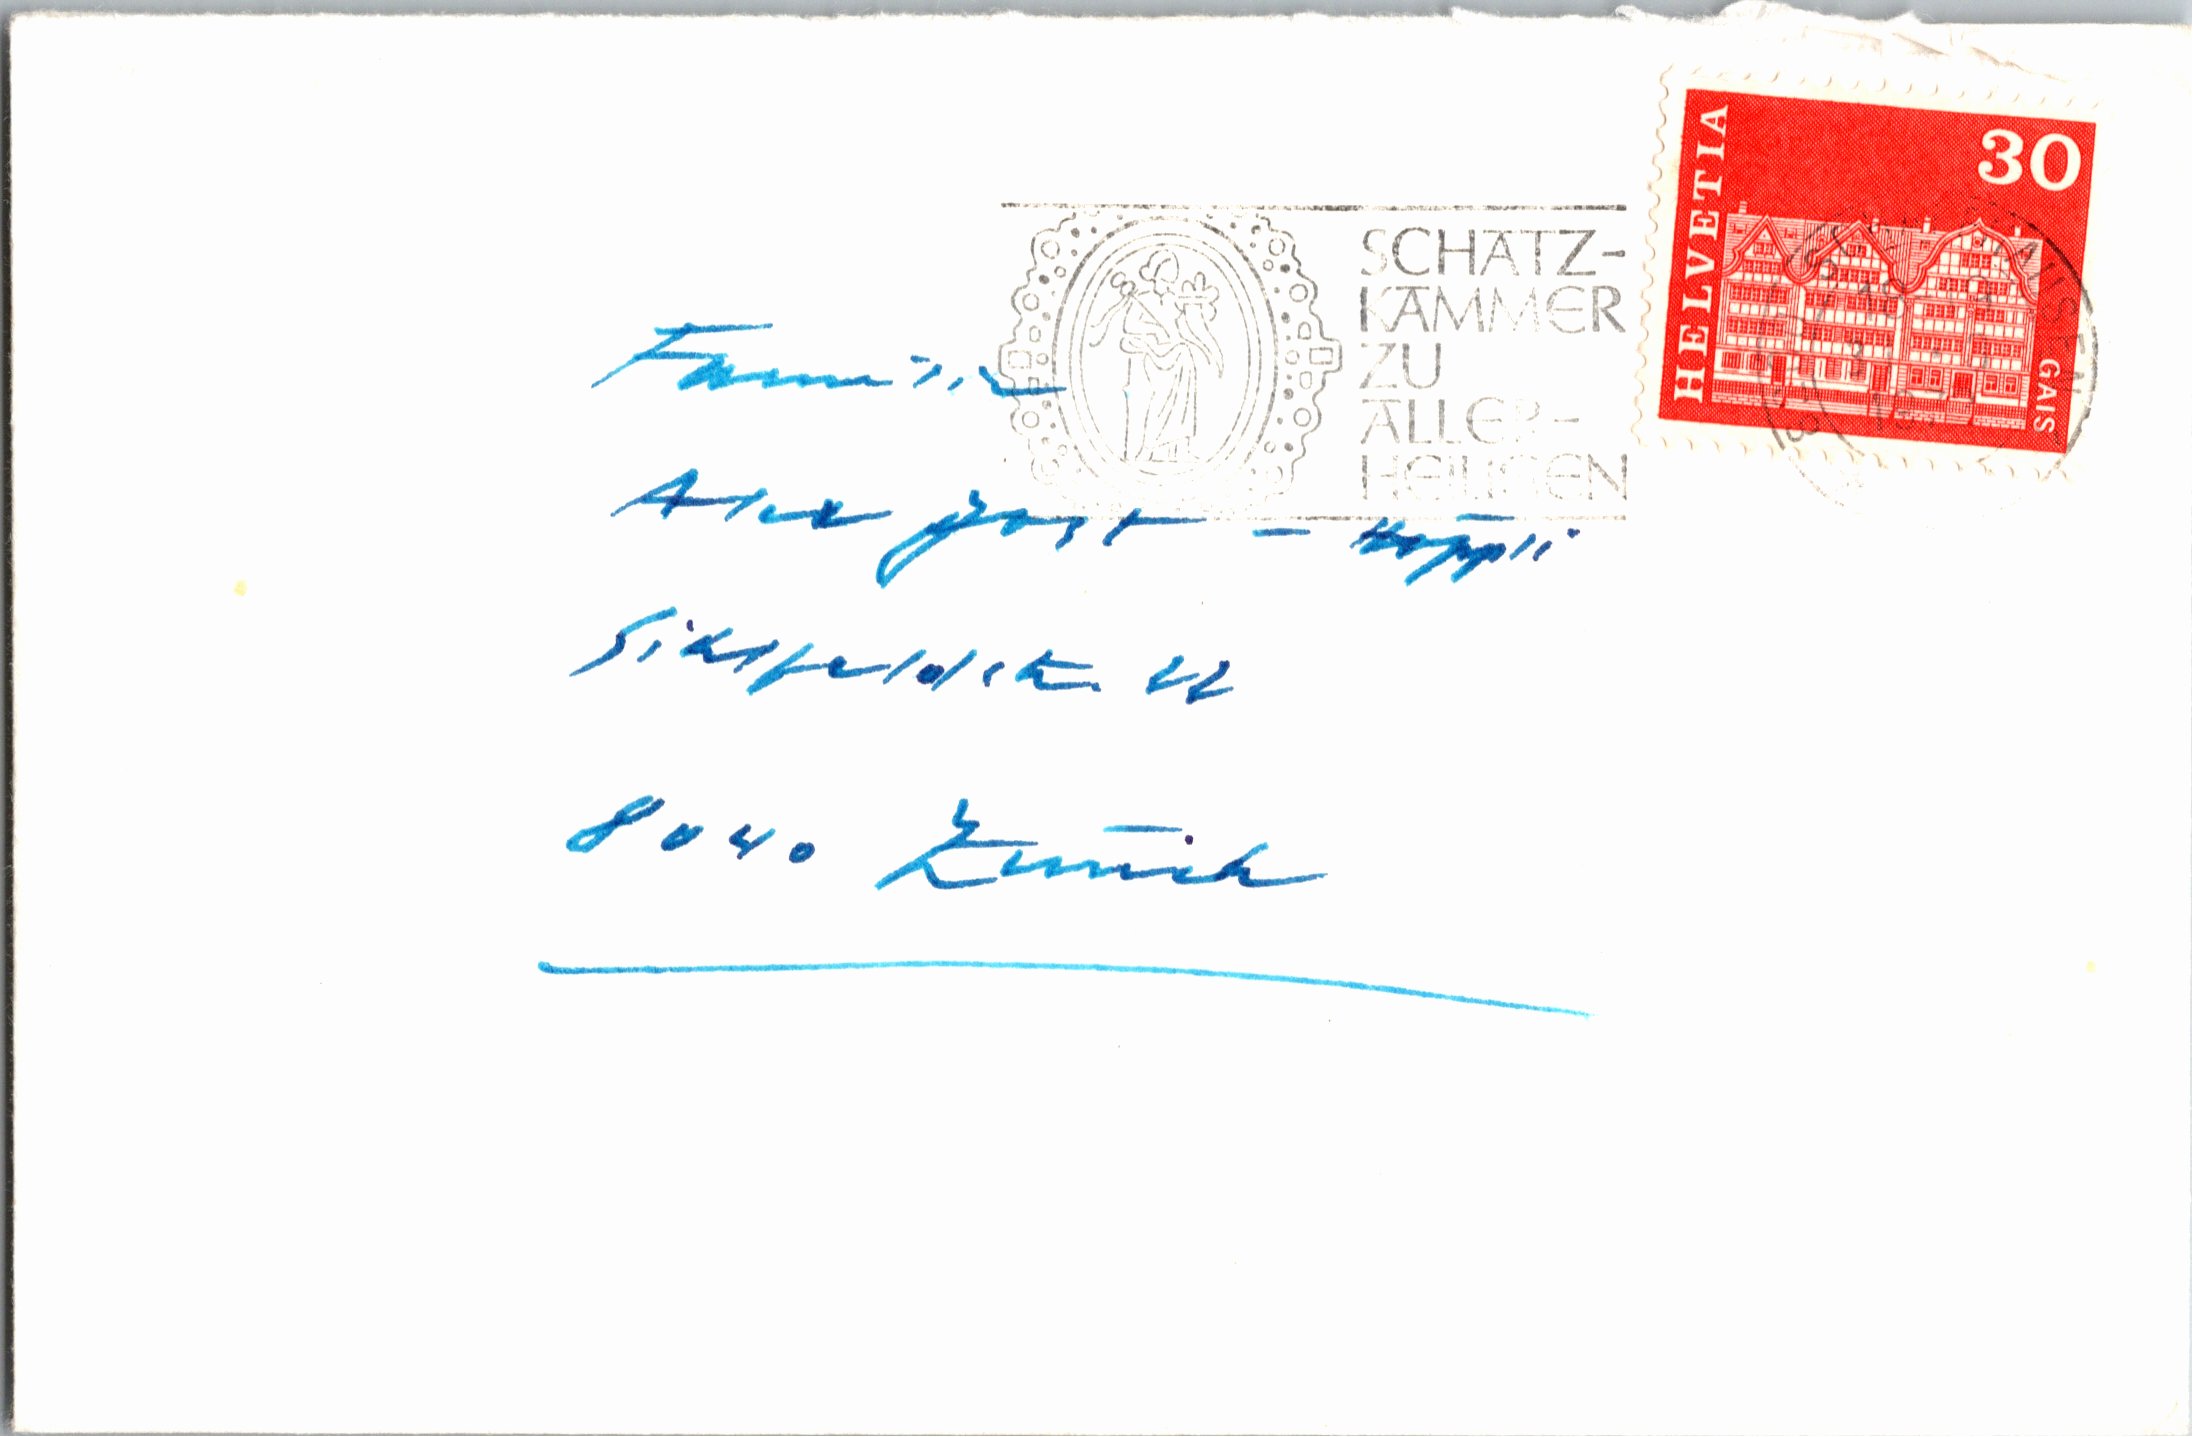 HELVETIA
30
GAIS
SCHATZ-
KAMMER
ZU
ALLER-
HEILIGEN
Familie
Alex Jost - Höppli
Sihlfeldstr. 22
8040 Zürich